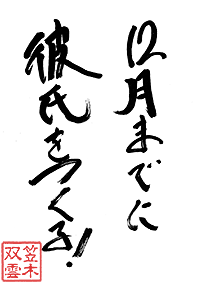 12月までに
彼氏をつくる!
笠木
双雲